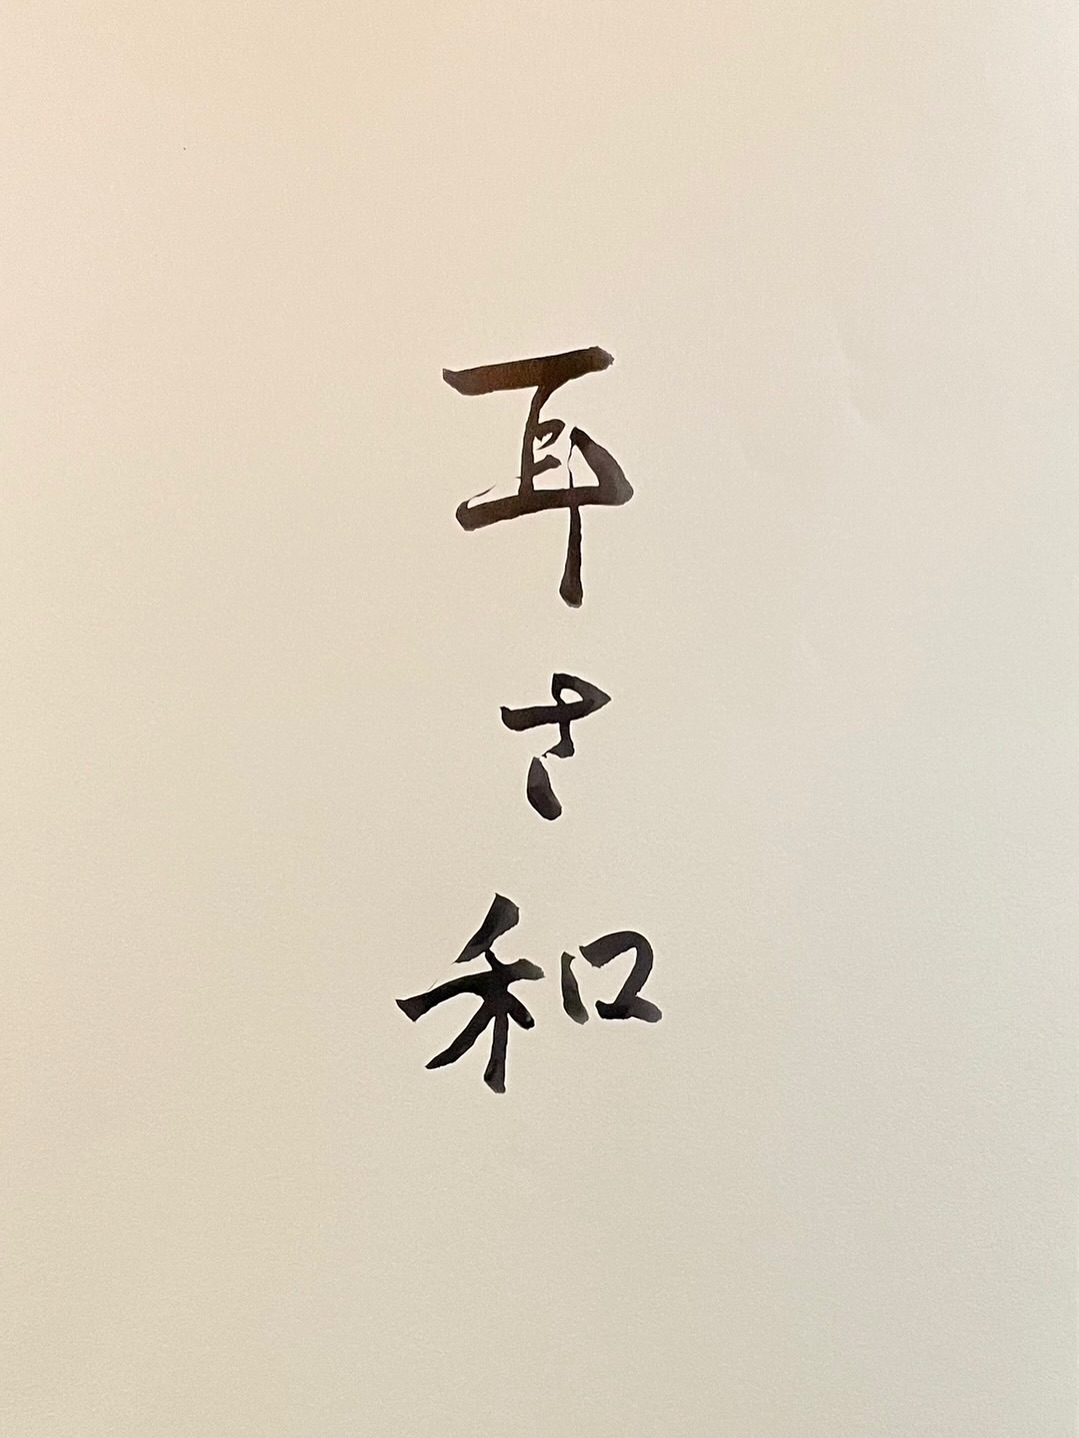 耳さ和